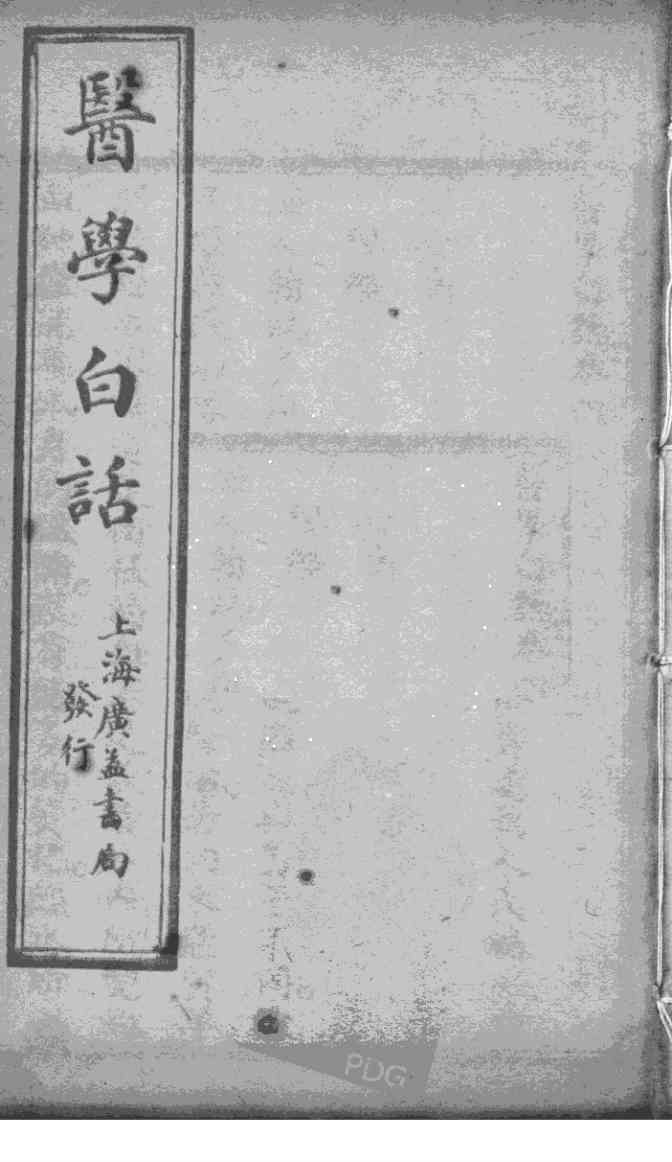 醫學白話
上海廣益書局
發行
PDG